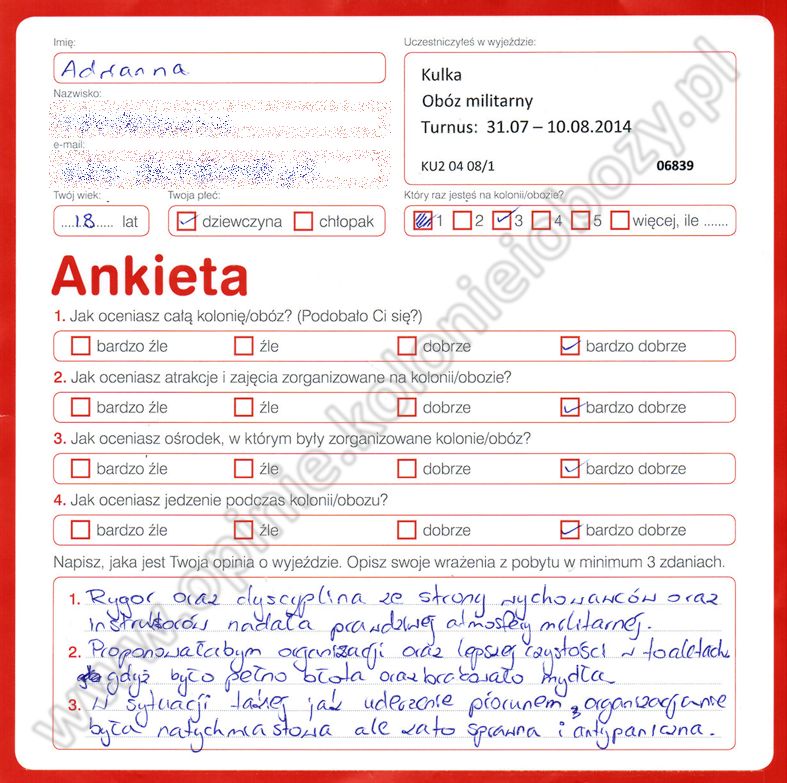 Imię:
Adrianna
Nazwisko:
e-mail:
Uczestniczyłeś w wyjeździe:
Kulka
Obóz militarny
Turnus: 31.07 – 10.08.2014
KU2 04 08/1 06839
Twój wiek:
18 lat
Twoja płeć:
dziewczyna chłopak
Który raz jesteś na kolonii/obozie?
1 2 3 4 5 więcej, ile .......
Ankieta
1. Jak oceniasz całą kolonię/obóz? (Podobało Ci się?)
bardzo źle źle dobrze bardzo dobrze
2. Jak oceniasz atrakcje i zajęcia zorganizowane na kolonii/obozie?
bardzo źle źle dobrze bardzo dobrze
3. Jak oceniasz ośrodek, w którym były zorganizowane kolonie/obóz?
bardzo źle źle dobrze bardzo dobrze
4. Jak oceniasz jedzenie podczas kolonii/obozu?
bardzo źle źle dobrze bardzo dobrze
Napisz, jaka jest Twoja opinia o wyjeździe. Opisz swoje wrażenia z pobytu w minimum 3 zdaniach.
1. Rygor oraz dyscyplina ze strony wychowawców oraz
instruktorów nadała prawdziwej atmosfery militarnej.
2. Proponowałabym organizacji oraz lepszej czystości w toaletach
gdyż było pełno błota oraz brakowało mydła.
3. W sytuacji takiej jak uderzenie piorunem, organizacja nie
była natychmiastowa ale zato sprawna i antypaniczna.
www.opinie.kolonieiobozy.pl